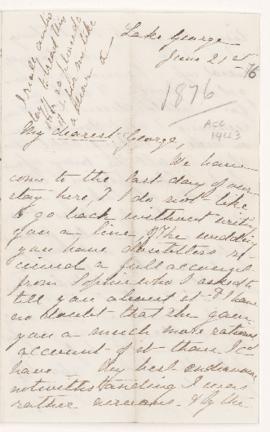 Lake George
June 21st
76
1876
Acc
14463
My dearest George,
We have
come to the last day of our
stay here, & I do not like
to go back without writing
you a line. Of the wedding
you have doubtless re-
ceived a full account
from Sophie who I asked to
tell you about it & I have
no doubt that she gave
you a much more rational
account of it than I co
have — My best endeavours
notwithstanding I was
rather nervous & by the